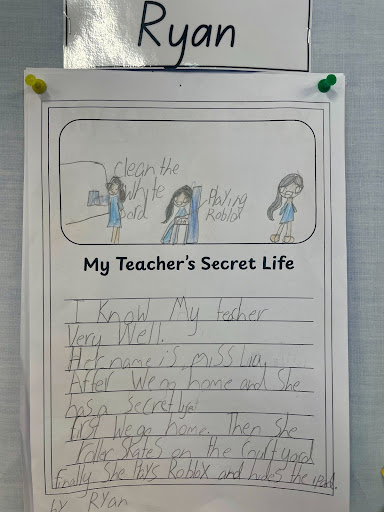 Ryan
clean the
whyte
bord
Playing
Roblox
My Teacher's Secret Life
I Know My teher
Very Well.
Her name is miss Lia,
After We go home and She
has a Secret life!
First We go home. Then She
roller Skates on the Court yard
finally She Plays Roblox and hides the ipad.
by RYan